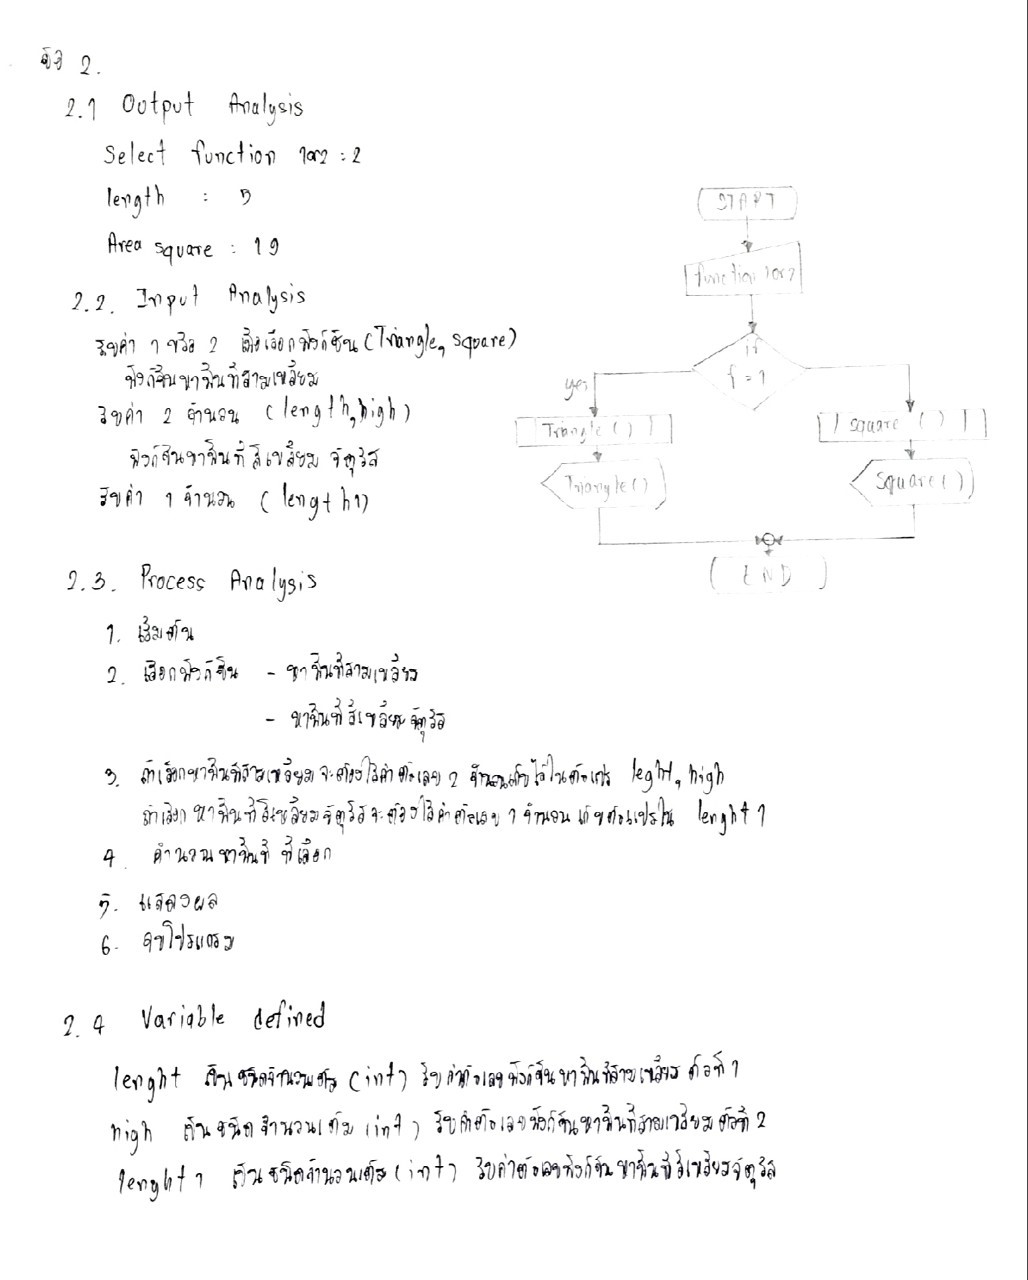 ข้อ 2.
2.1 Output Analysis
Select function 1or2 : 2
length : 5
Area square : 19
2.2. Input Analysis
รับค่า 1 หรือ 2 เพื่อเลือกฟังก์ชัน (Triangle, square)
ฟังก์ชันหาพื้นที่สามเหลี่ยม
รับค่า 2 จำนวน (length, high)
ฟังก์ชันหาพื้นที่สี่เหลี่ยม จัตุรัส
รับค่า 1 จำนวน (length1)
START
function 1or2
if
f = 1
yes
Triangle ( )
square ( )
Triangle ( )
Square ( )
END
2.3. Process Analysis
1. เริ่มต้น
2. เลือกฟังก์ชัน - หาพื้นที่สามเหลี่ยม
- หาพื้นที่สี่เหลี่ยมจัตุรัส
3. ถ้าเลือกหาพื้นที่สามเหลี่ยม จะต้องใส่ค่าตัวเลข 2 จำนวนเก็บไว้ในตัวแปร leght, high
ถ้าเลือก หาพื้นที่สี่เหลี่ยมจัตุรัส จะต้องใส่ค่าตัวเลข 1 จำนวน เก็บตัวแปรใน lenght 1
4. คำนวณหาพื้นที่ ที่เลือก
5. แสดงผล
6. จบโปรแกรม
2.4 Variable defined
lenght เป็นชนิดจำนวนเต็ม (int) รับค่าตัวเลขฟังก์ชันหาพื้นที่สามเหลี่ยม ตัวที่ 1
high เป็นชนิดจำนวนเต็ม (int) รับค่าตัวเลขฟังก์ชันหาพื้นที่สามเหลี่ยม ตัวที่ 2
lenght 1 เป็นชนิดจำนวนเต็ม (int) รับค่าตัวเลขฟังก์ชันหาพื้นที่สี่เหลี่ยมจัตุรัส